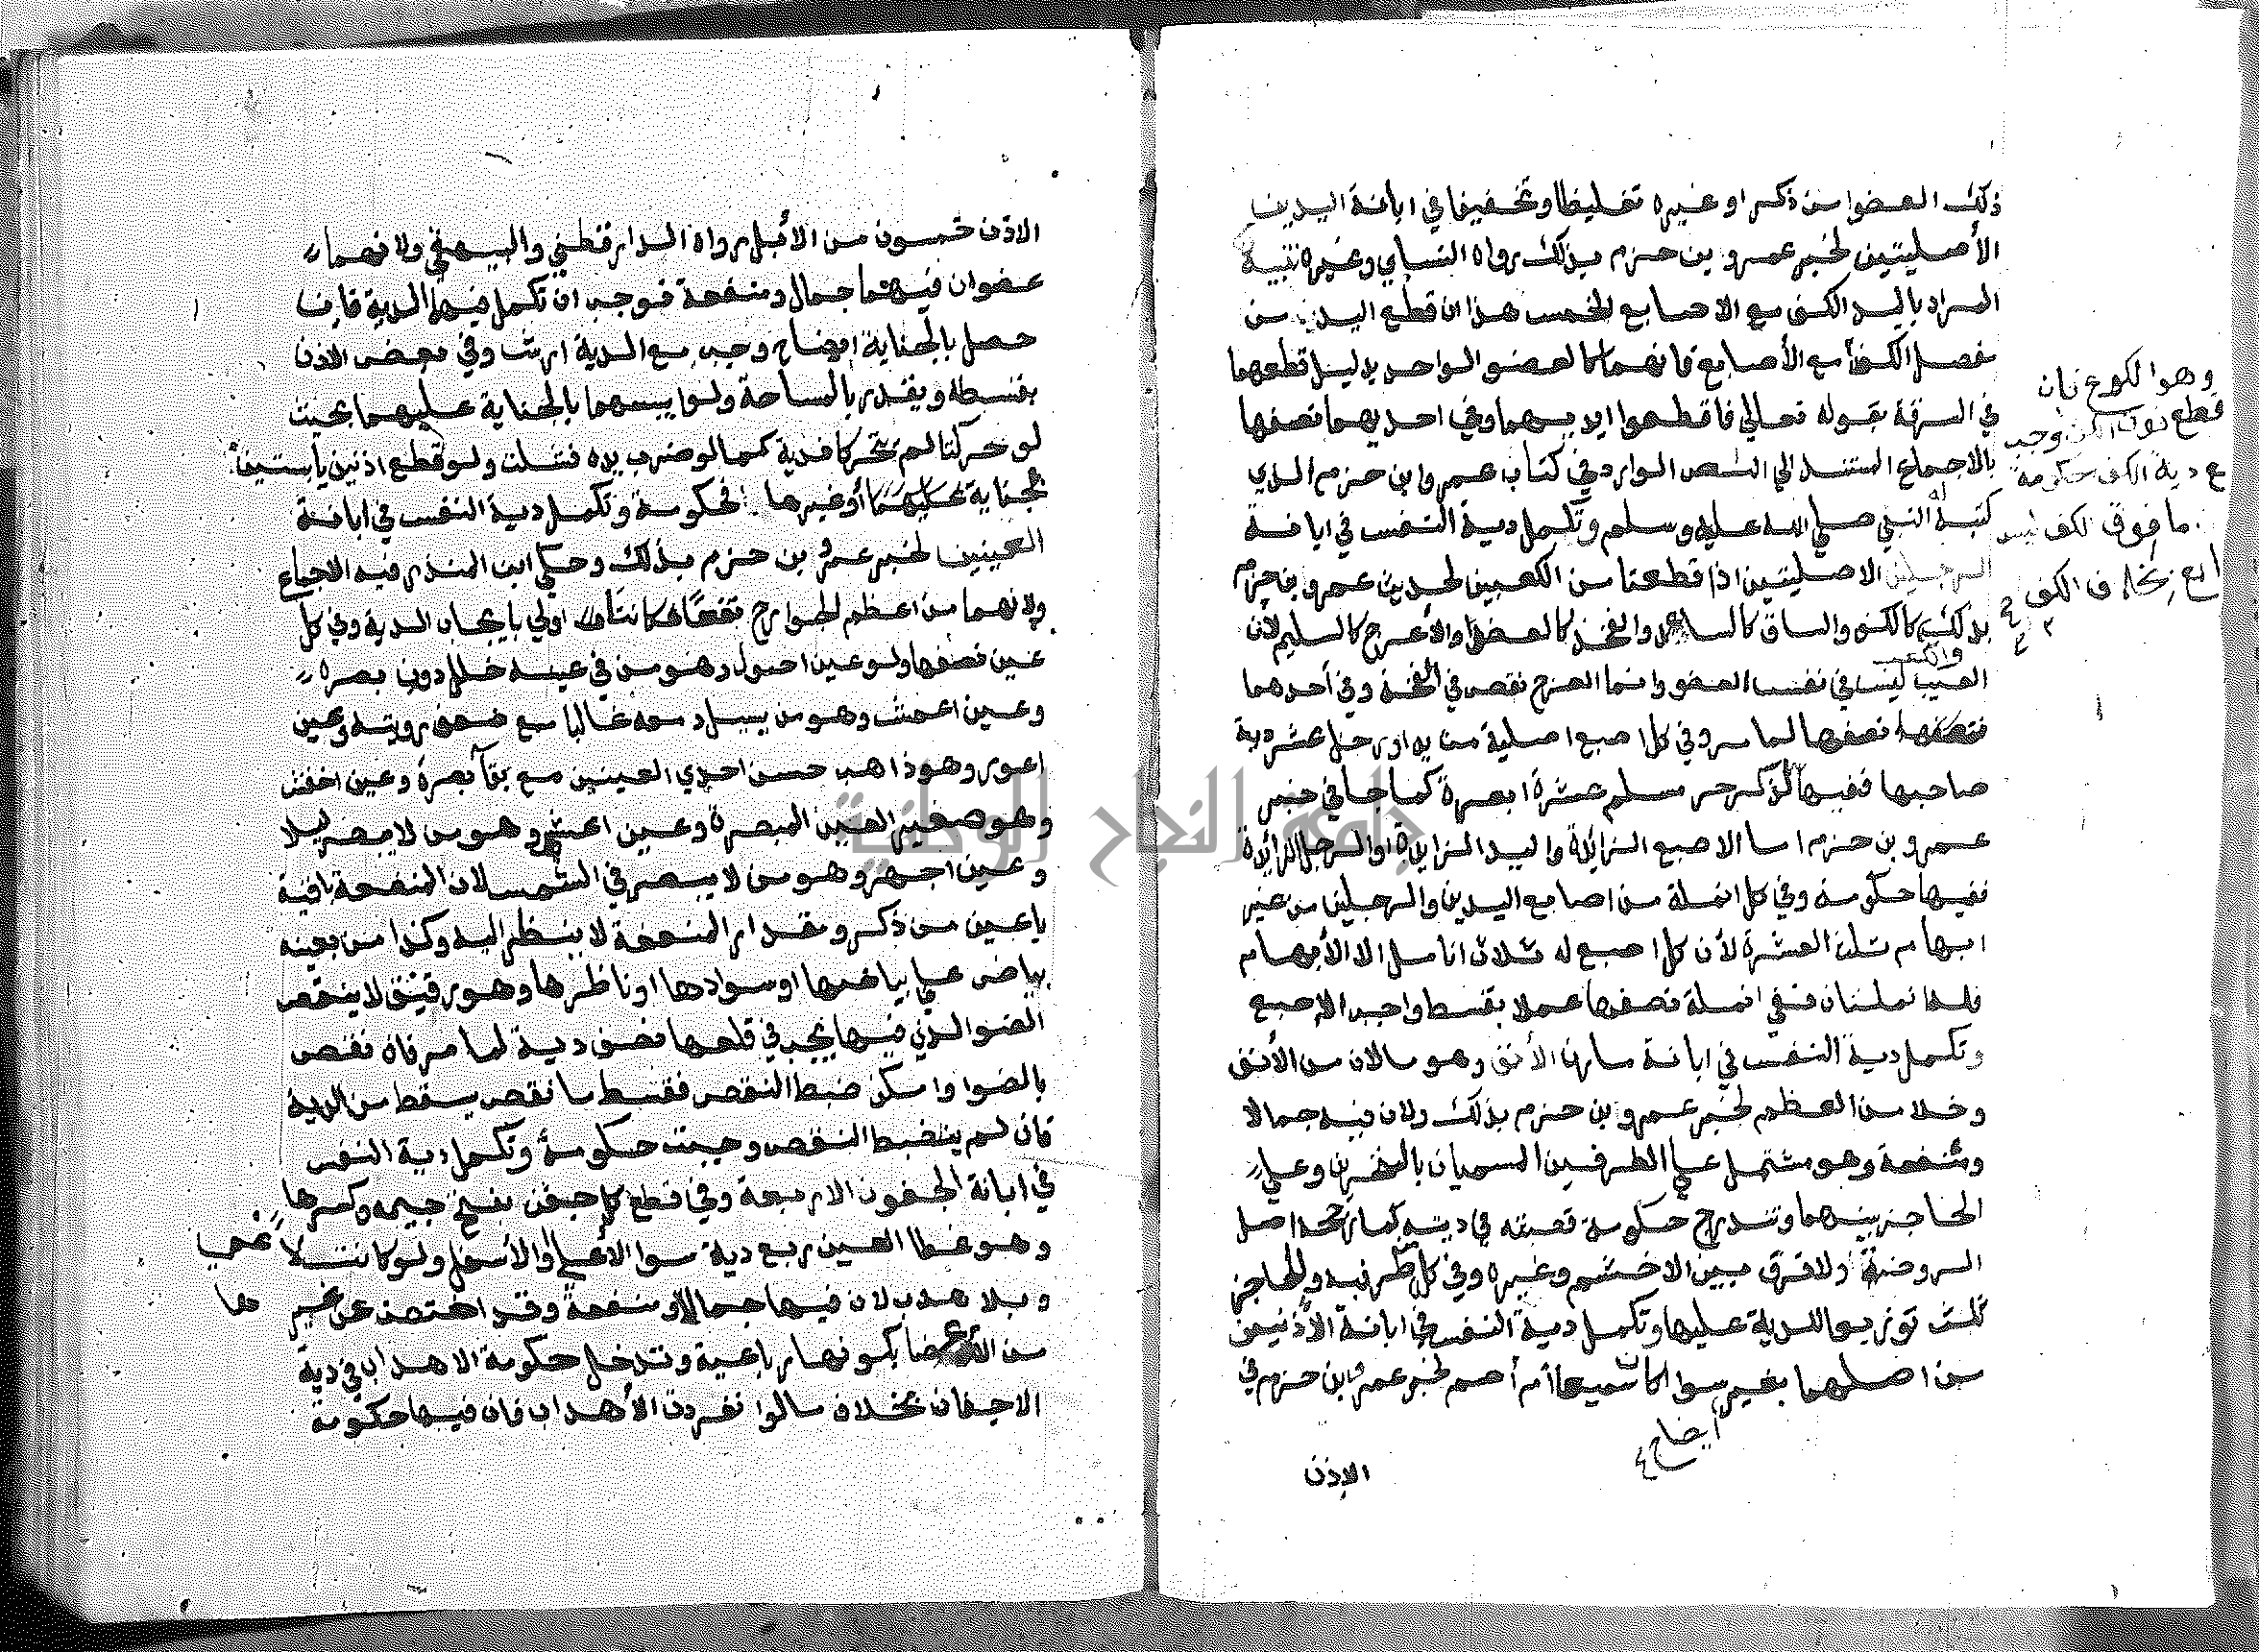 ذلك العضو من ذكر او غيره تغليظا وتخفيفا في ابانة اليدين
الأصليتين لخبر عمرو بن حزم بذلك رواه النساي وغيره تنبيه
المراد باليد الكف مع الاصابع الخمس هذا ان قطع اليد من
مفصل الكف مع الأصابع فانهما كالعضو الواحد بدليل قطعهما
في السرقة بقوله تعالي فاقطعوا ايديهما وفي احديهما نصفها
بالاجماع المستند الي النص الوارد في كتاب عمرو ابن حزم الذي
كتبه النبي صلي الله عليه وسلم وتكمل دية النفس في ابانة
الرجلين الاصليتين اذا قطعتا من الكعبين لحديث عمرو بن حزم
بذلك كالكف والساق كالساعد والفخذ كالعضد والأعرج كالسليم لان
العيب ليس في نفس العضو وانما العرج نقص في الفخذ وفي أحدهما
نصفها لما مر وفي كل اصبع اصلية من يد او رجل عشر دية
صاحبها ففيها لذكر حر مسلم عشرة ابعرة كما جا في خبر
عمرو بن حزم اما الاصبع الزائدة واليد الزايدة او الرجل الزائدة
ففيها حكومة وفي كل انملة من اصابع اليدين والرجلين من غير
ابهام ثلث العشرة لأن كل اصبع له ثلاث انامل الا الأبهام
فله انملتان ففي انملة نصفها عملا بقسط واجب الاصبع
وتكمل دية النفس في ابانة مارن الأنف وهو مالان من الأنف
وخلا من العظم لخبر عمرو بن حزم بذلك ولان فيه جمالا
ومنفعة وهو مشتمل علي الطرفين المسميان بالمنخرين وعلي
الحاجز بينهما وتندرج حكومة قصبته في ديته كما رجحه اصل
الروضة ولا فرق بين الاخشم وغيره وفي كل طرفيه والحاجز
ثلث توزيعا للدية عليها وتكمل دية النفس في ابانة الأذنين
من اصلهما بغير سوا اكان سميعا أم أصم لخبر عمرو بن حزم في
ايضاح
الاذن
وهو الكوع فان
قطع فوق الكف وجب
مع دية الكف حكومة
ما فوق الكف ليس
بخلاف الكف
الاذن خمسون من الأبل رواه الدارقطني والبيهقي ولانهما
عضوان فيهما جمال ومنفعة فوجب ان تكمل فيهما الدية فان
حصل بالجناية ايضاح وجب مع الدية ارش وفي بعض الاذن
بقسطه ويقدر بالمساحة ولو ايبسهما بالجناية عليهما بحيث
لو حركتا لم تتحركا فدية كما لو ضرب يده فشلت ولو قطع اذنين يابستين
بجناية عليهما أو غيرها فحكومة وتكمل دية النفس في ابانة
العينين لخبر عمرو بن حزم بذلك وحكي ابن المنذر فيه الاجماع
ولانهما من اعظم الجوارح نفعا فكانتا اولي بايجاب الدية وفي كل
عين نصفها ولو عين احول وهو من في عينه خلل دون بصره
وعين اعمش وهو من يسيل دمعه غالبا مع ضعف رويته وعين
اعور وهو ذاهب حسن احدي العينين مع بقآ بصره وعين اخفش
وهو صغير العين المبصرة وعين اعشي وهو من لا يبصر ليلا
وعين اجهر وهو من لا يبصر في الشمس لان المنفعة باقية
باعين من ذكر ومقدار المنفعة لا ينظر اليه وكذا من بعينه
بياض علي بياضها او سوادها او ناظرها وهو رقيق لا ينقص
الضو الذي فيها يجب في قلعها نصف دية لما مر فان نقص
بالضو وامكن ضبط النقص فقسط ما نقص يسقط من الدية
فان لم ينضبط النقص وجبت حكومة وتكمل دية النفس
في ابانة الجفون الاربعة وفي قطع كل جفن بفتح جيمه وكسرها
وهو غطا العين ربع دية سوا الاعلي والأسفل ولو كانت لأعمي
وبلا هدب لان فيها جمالا ومنفعة وقد اختصت عن غيرها
من الأعضا بكونها رباعية وتدخل حكومة الاهداب في دية
الاجفان بخلاف مالوا نفردت الأهداب فان فيها حكومة
جامعة النجاح الوطنية